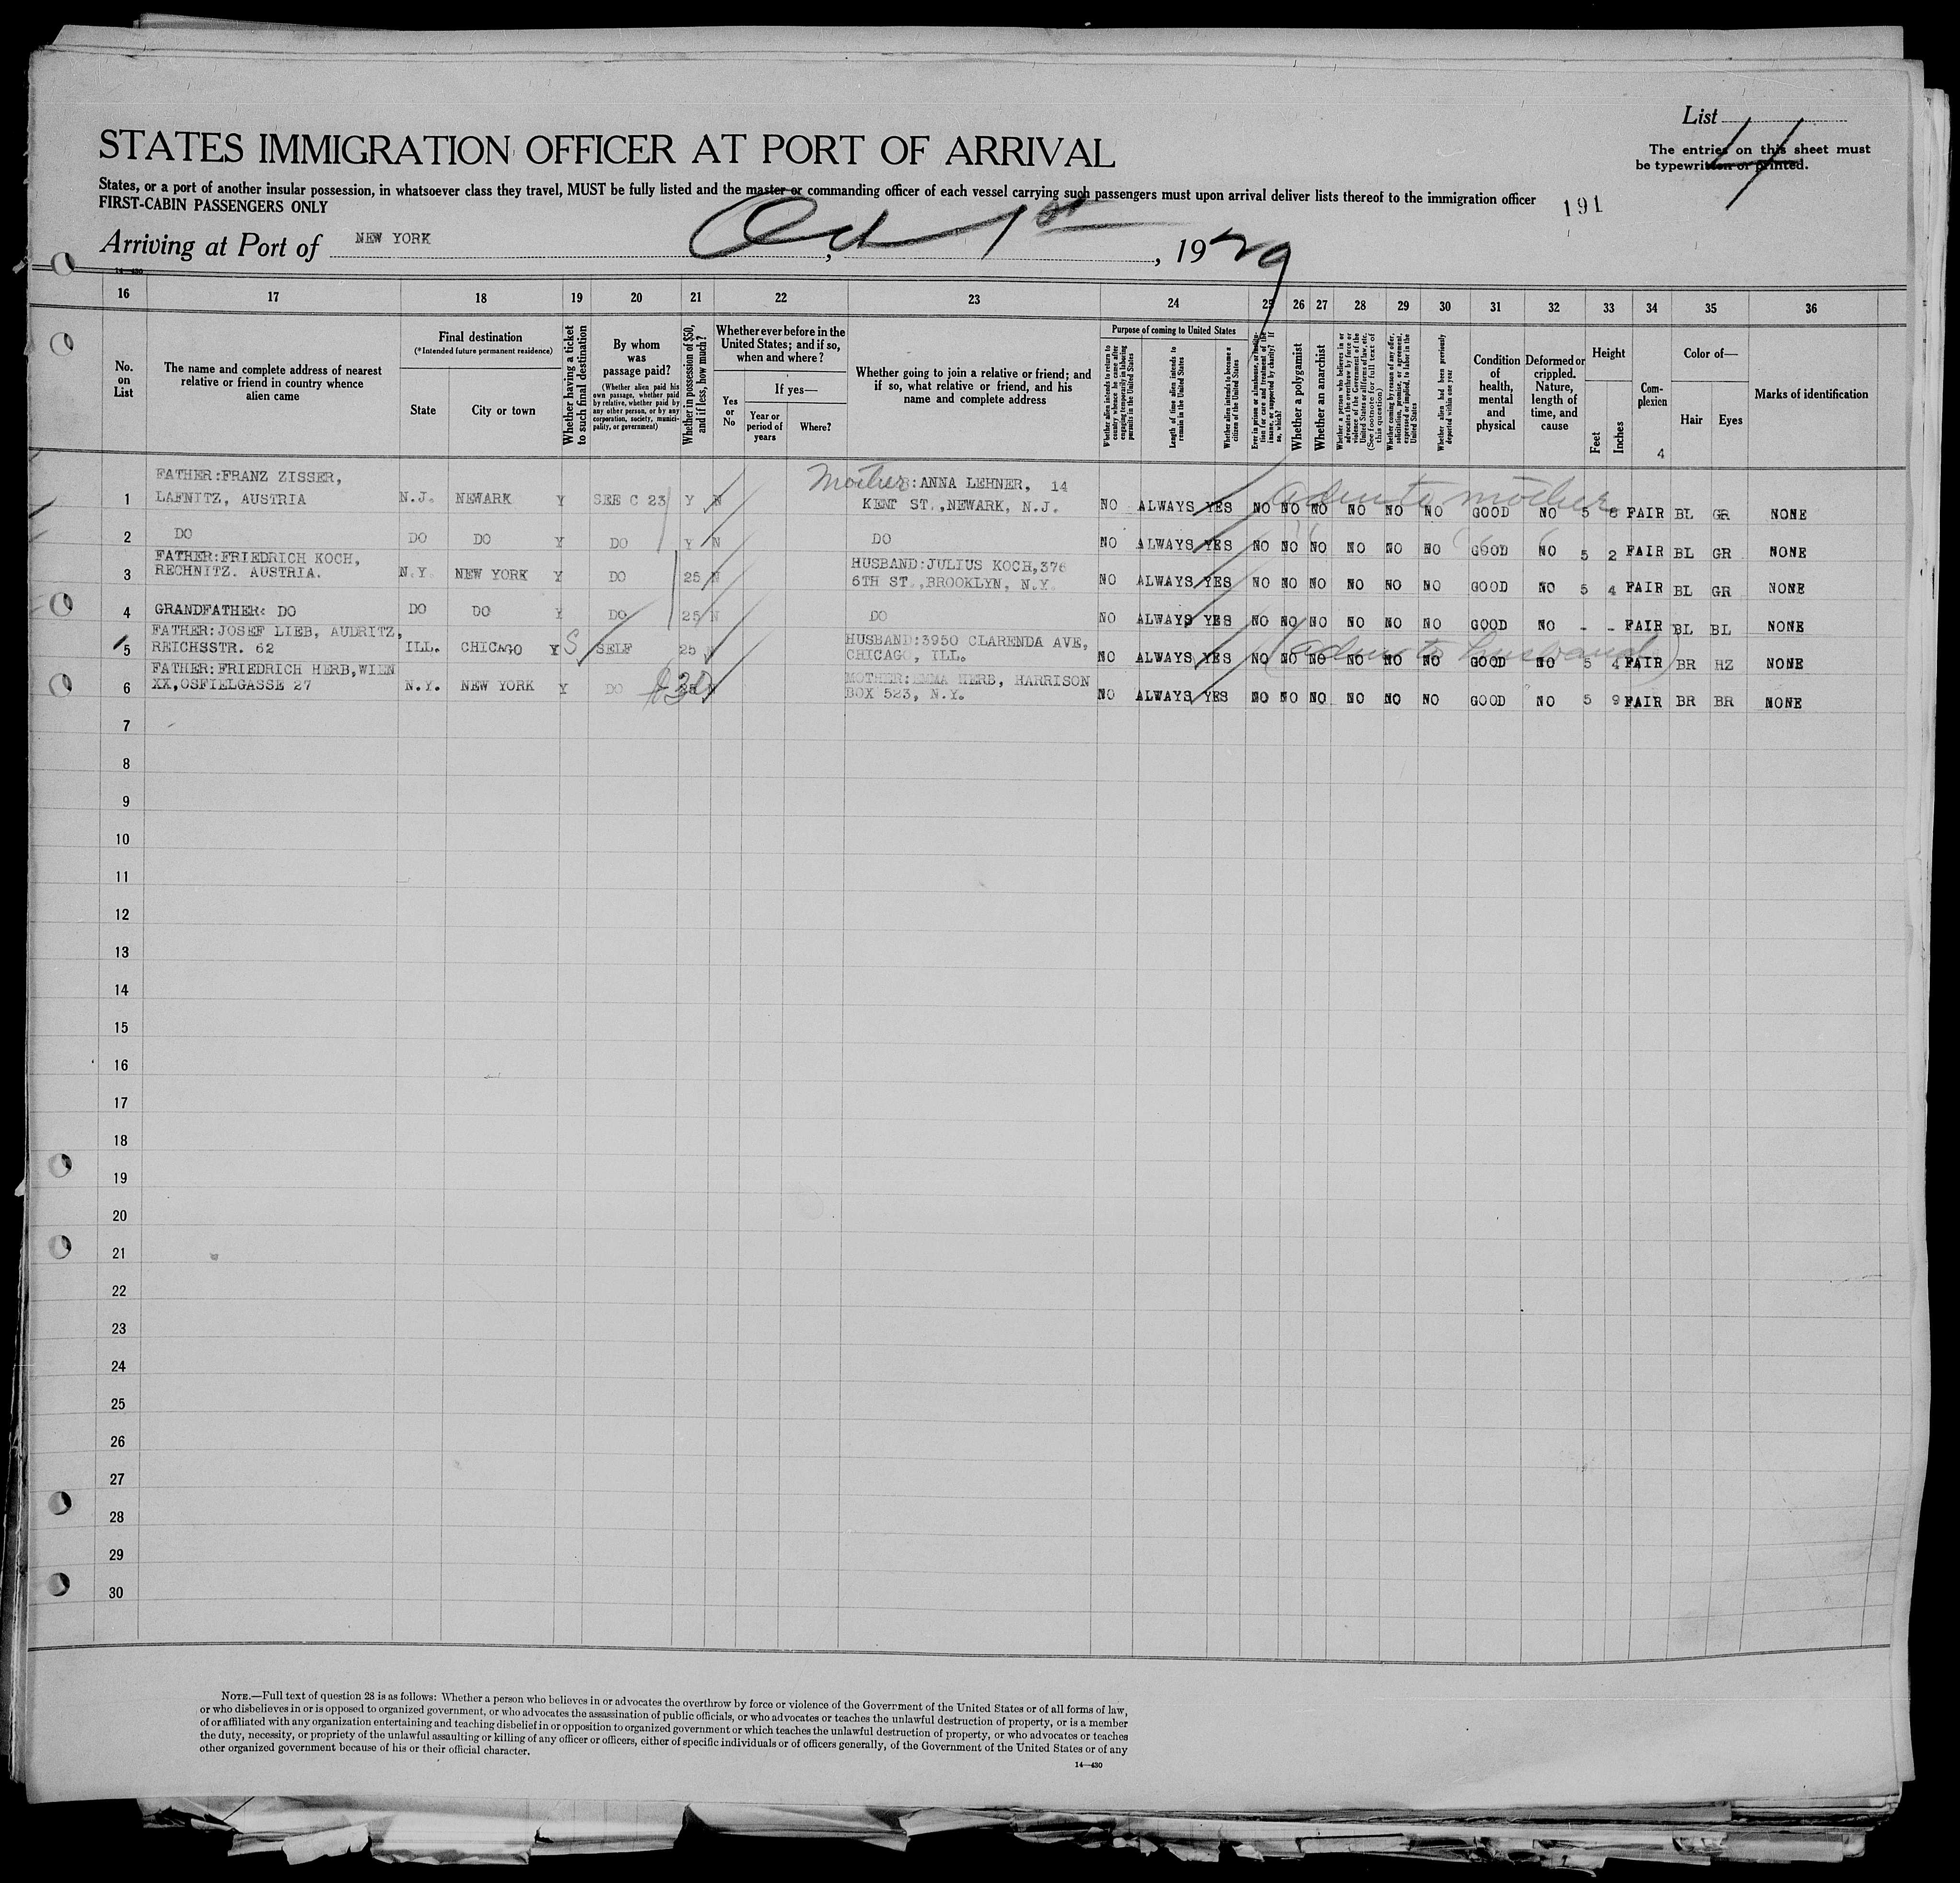 List 4
STATES IMMIGRATION OFFICER AT PORT OF ARRIVAL
The entries on this sheet must
be typewritten or printed.
States, or a port of another insular possession, in whatsoever class they travel, MUST be fully listed and the master or commanding officer of each vessel carrying such passengers must upon arrival deliver lists thereof to the immigration officer
FIRST-CABIN PASSENGERS ONLY
191
Arriving at Port of NEW YORK, Oct 1st, 1929
14—430
16 17 18 19 20 21 22 23 24 25 26 27 28 29 30 31 32 33 34 35 36
No. on List
The name and complete address of nearest relative or friend in country whence alien came
Final destination
(*Intended future permanent residence)
State
City or town
Whether having a ticket to such final destination
By whom was passage paid?
(Whether alien paid his own passage, whether paid by relative, whether paid by any other person, or by any corporation, society, municipality, or government)
Whether in possession of $50, and if less, how much?
Whether ever before in the United States; and if so, when and where?
Yes or No
If yes—
Year or period of years
Where?
Whether going to join a relative or friend; and if so, what relative or friend, and his name and complete address
Purpose of coming to United States
Whether alien intends to return to country whence he came after engaging temporarily in laboring pursuits in the United States
Length of time alien intends to remain in the United States
Whether alien intends to become a citizen of the United States
Ever in prison or almshouse, or institution for care and treatment of the insane, or supported by charity? If so, which?
Whether a polygamist
Whether an anarchist
Whether a person who believes in or advocates the overthrow by force or violence of the Government of the United States or all forms of law, etc. (See footnote for full text of this question)
Whether coming by reason of any offer, solicitation, promise, or agreement, expressed or implied, to labor in the United States
Whether alien had been previously deported within one year
Condition of health, mental and physical
Deformed or crippled. Nature, length of time, and cause
Height
Feet
Inches
Complexion
4
Color of—
Hair
Eyes
Marks of identification
1 FATHER:FRANZ ZISSER, LAFNITZ, AUSTRIA N.J. NEWARK Y SEE C 23 Y N Mother :ANNA LEHNER, 14 KENT ST.,NEWARK, N.J. NO ALWAYS YES NO NO NO NO NO NO GOOD NO 5 FAIR BL GR NONE
adm to mother
2 DO DO DO Y DO Y N DO NO ALWAYS YES NO NO NO NO NO NO GOOD NO 5 2 FAIR BL GR NONE
3 FATHER:FRIEDRICH KOCH, RECHNITZ. AUSTRIA. N.Y. NEW YORK Y DO 25 N HUSBAND:JULIUS KOCH,376 6TH ST.,BROOKLYN, N.Y. NO ALWAYS YES NO NO NO NO NO NO GOOD NO 5 4 FAIR BL GR NONE
4 GRANDFATHER: DO DO DO Y DO 25 N DO NO ALWAYS YES NO NO NO NO NO NO GOOD NO - - FAIR BL BL NONE
5 FATHER:JOSEF LIEB, AUDRITZ, REICHSSTR. 62 ILL. CHICAGO Y S SELF 25 HUSBAND:3950 CLARENDA AVE, CHICAGO, ILL. NO ALWAYS YES NO NO NO NO NO NO GOOD NO 5 4 FAIR BR HZ NONE
(adm to husband)
6 FATHER:FRIEDRICH HERB,WIEN XX,OSFIELGASSE 27 N.Y. NEW YORK Y DO $30 25 N MOTHER:EMMA HERB, HARRISON BOX 523, N.Y. NO ALWAYS YES NO NO NO NO NO NO GOOD NO 5 9 FAIR BR BR NONE
7
8
9
10
11
12
13
14
15
16
17
18
19
20
21
22
23
24
25
26
27
28
29
30
NOTE.—Full text of question 28 is as follows: Whether a person who believes in or advocates the overthrow by force or violence of the Government of the United States or of all forms of law,
or who disbelieves in or is opposed to organized government, or who advocates the assassination of public officials, or who advocates or teaches the unlawful destruction of property, or is a member
of or affiliated with any organization entertaining and teaching disbelief in or opposition to organized government or which teaches the unlawful destruction of property, or who advocates or teaches
the duty, necessity, or propriety of the unlawful assaulting or killing of any officer or officers, either of specific individuals or of officers generally, of the Government of the United States or of any
other organized government because of his or their official character.
14—430